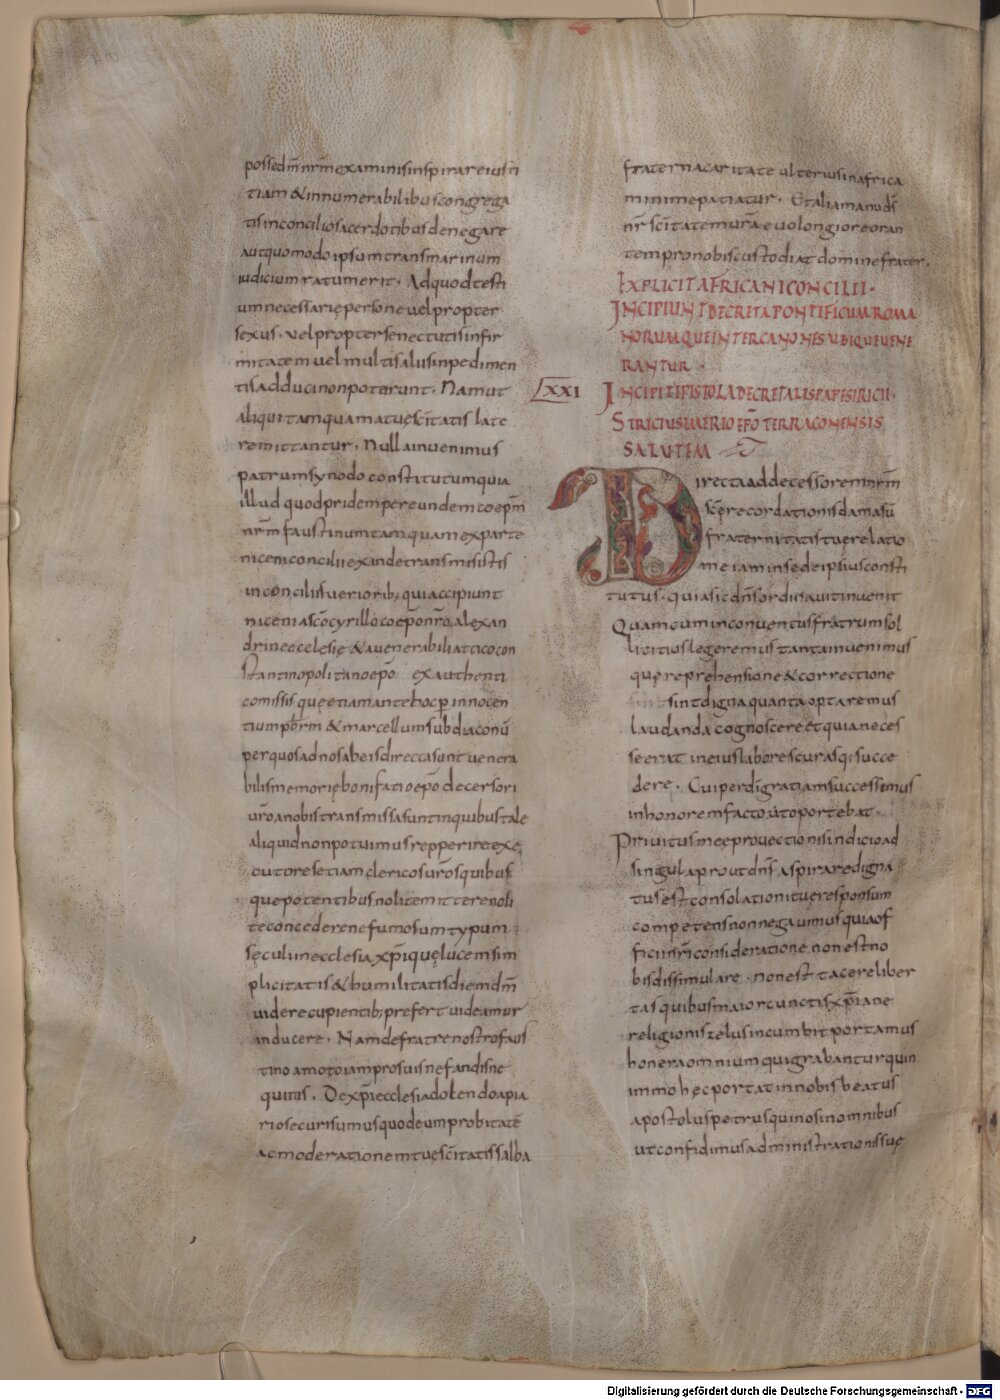 possedm̄ nr̄m examinis inspirare iusti
tiam & innumerabilibus congrega
tis in concilio sacerdotibus denegare
aut quomodo ipsum transmarinum
iudicium ratum erit. Ad quod testi
um necessarię personę vel propter
sexus. vel propter senectutis infir
mitatem vel multis aliis inpedimen
tis adduci non poterunt. Nam ut
aliqui tamquam a tuę sc̄itatis late
re mittantur. Nulla invenimus
patrum synodo constitutum quia
illud quod pridem per eundem coep̄m
nr̄m faustinum tamquam ex parte
niceni concilii exinde transmisistis
in conciliis veriorib; qui accipiunt
niceni a sc̄o cyrillo coep̄o nr̄o alexan
drine ecclesię & a venerabili attico con
stantinopolitano ep̄o ex authenti
co missis quę etiam ante hoc p̄ innocen
tium pb̄rm & marcellum subdiaconū
per quos ad nos ab eis directa sunt venera
bilis memorię bonifatio ep̄o decessori
ur̄o a nobis transmissa sunt in quibus tale
aliquid non potuimus repperire exe
cutores etiam clericos ur̄os quibus
que potentibus nolite mittere noli
te concedere ne fumosum typum
sęculi in ecclesia xp̄i quę lucem sim
plicitatis & humilitatis diem dm̄
videre cupientib; prefert videamur
inducere. Nam de fratre nostro faus
tino amoto iam pro suis nefandis ne
quitiis. De xp̄i ecclesia dolendo apia
rio securi sumus quod eum probitatē
ac moderationem tuę sc̄itatis salba
fraterna caritate ulterius in africa
minime patiatur. Et alia manu ds̄
nr̄ sc̄itatem ur̄a evo longiore oran
tem pro nobis custodiat domine frater.
EXPLICIT AFRICANI CONCILII.
INCIPIUNT DECRETA PONTIFICUM ROMA
NORUM QUE INTER CANONES UBIQUE VENE
RANTUR.
LXXI INCIPIT EPISTOLA DECRETALIS PAPE SIRICII.
SIRICIUS IMERIO EP̄O TERRACONENSIS
SALUTEM
Directa ad decessorem nr̄m
sc̄ę recordationis damasū
fraternitatis tuę relatio
me iam in sede ipsius consti
tutus. quia sic dn̄s ordinavit invenit
Quam cum in conventus fratrum sol
licitius legeremus tanta invenimus
quę reprehensione & correctione
sint digna quanta optaremus
laudanda cognoscere et quia neces
se erat in eius labores curasq; succe
dere. Cui per dī gratiam successimus
in honorem facto ut oportebat.
Privitus meę provectionis indicio ad
singula prout dn̄s aspirare digna
tus est consolationi tuę responsum
competens non negavimus quia of
ficii nr̄i consideratione non est no
bis dissimulare. non est tacere liber
tas quibus maior cunctis xp̄iane
religionis zelus incumbit portamus
honera omnium qui grabantur quin
immo hęc portat in nobis beatus
apostolus petrus qui nos in omnibus
ut confidimus administrationis suę
Digitalisierung gefördert durch die Deutsche Forschungsgemeinschaft - DFG